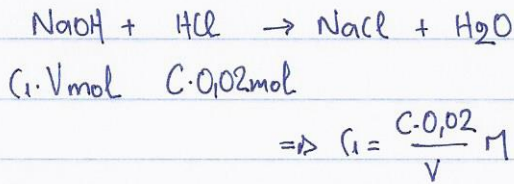 NaOH + HCl → NaCl + H2O
C1.V mol C.0,02 mol
=> C1 = C.0,02 / V M